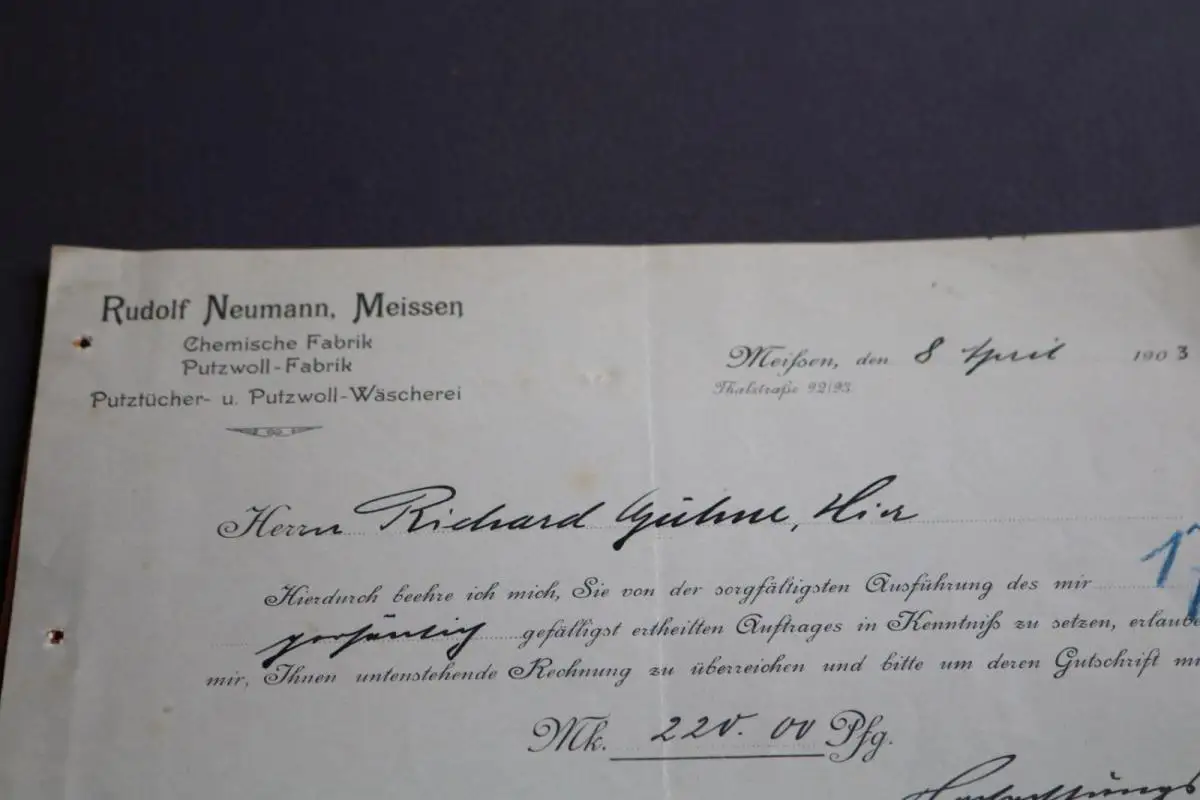 Rudolf Neumann, Meissen
Chemische Fabrik
Putzwoll-Fabrik
Putztücher- u. Putzwoll-Wäscherei
Meißen, den 8 April 1903
Thalstraße 92/93.
Herrn Richard Gühne, Hier
Hierdurch beehre ich mich, Sie von der sorgfältigsten Ausführung des mir
persönlich gefälligst ertheilten Auftrages in Kenntniß zu setzen, erlaube
mir, Ihnen untenstehende Rechnung zu überreichen und bitte um deren Gutschrift
Mk. 220. 00 Pfg.